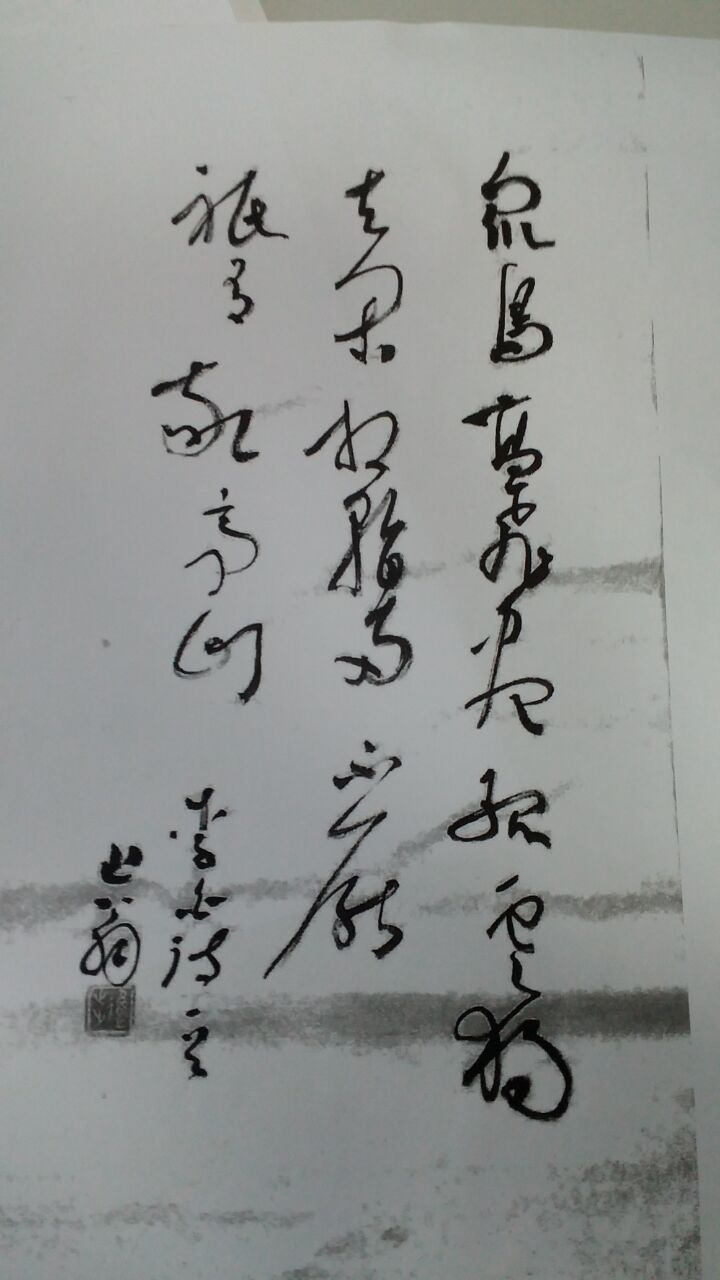 眾鳥高飛盡孤雲獨
去閑相看兩不厭
祇有敬亭山 李白詩
山翁